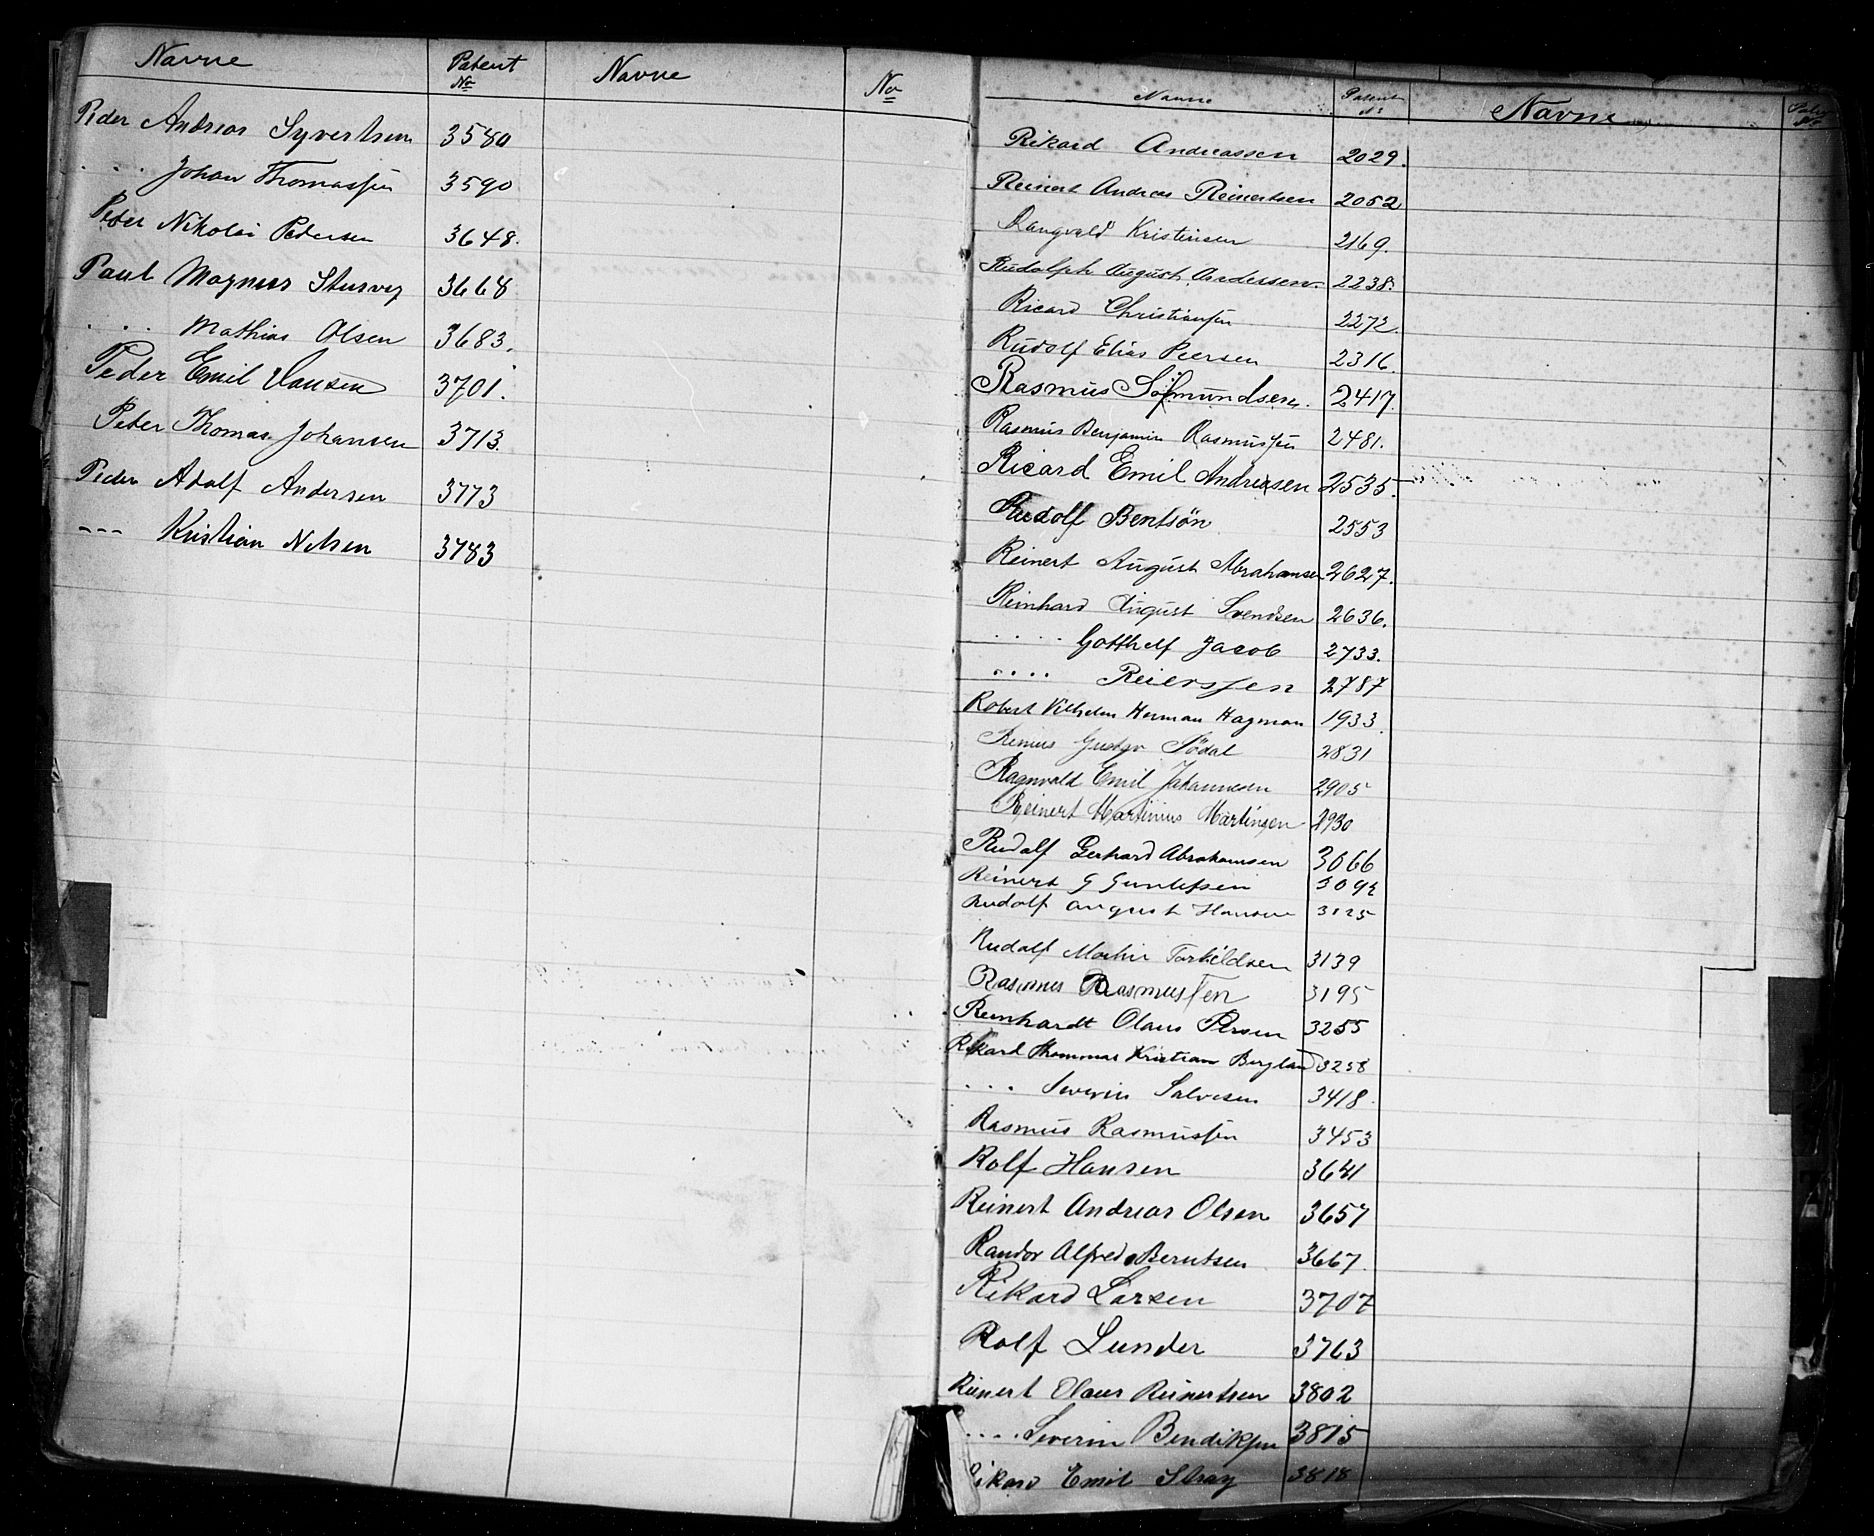 Navne Patent No Navne No
Peder Andreas Syvertsen 3580
. . . Johan Thomassen 3590
Peter Nikolai Pedersen 3648.
Paul Magnus Stusvig 3668
. . . Mathias Olsen 3683.
Peder Emil Hansen 3701.
Peter Thomas Johansen 3713.
Peder Adolf Andersen 3773
--- Kristian Nilsen 3783
Navne Patent Nr Navne
Rikard Andreassen 2029.
Reinert Andreas Reinertsen 2052
Rangvald Kristensen 2169.
Rudolph August Anderssen. 2238.
Ricard Christiansen 2272.
Rudolf Elias Peersen 2316.
Rasmus Sørmundsen. 2417.
Rasmus Benjamin Rasmussen 2481.
Ricard Emil Andreasen 2535.
Rudolf Bentsøn 2553
Reinert August Abrahamsen 2627.
Reinhard August Svendsen 2636.
. . . . Gotthelf Jacob 2733.
. . . . Reierssen 2787
Robert Vilhelm Herman Hagman 1933
Remus Gustav Sødal 2831
Ragnvald Emil Johannesen 2905
Reinert Martinius Martinsen 2930
Rudolf Gerhard Abrahamsen 3066
Reinert G Gunlefsen 3092
Rudolf August Hansen 3125
Rudolf Martin Torkildsen 3139
Rasmus Rasmussen 3195
Reinhardt Olaus Persen 3255
Rikard Thommas Kristian Bergland 3258
. . . Severin Salvesen 3418.
Rasmus Rasmussen 3453
Rolf Hansen 3641
Reinert Andreas Olsen 3657
Randor Alfred Berntsen 3667.
Rikard Larsen 3707
Rolf Lunder 3763
Reinert Olaus Reinertsen 3802
. . . . Severin Bendiksen 3815
Rikard Emil Stray 3818